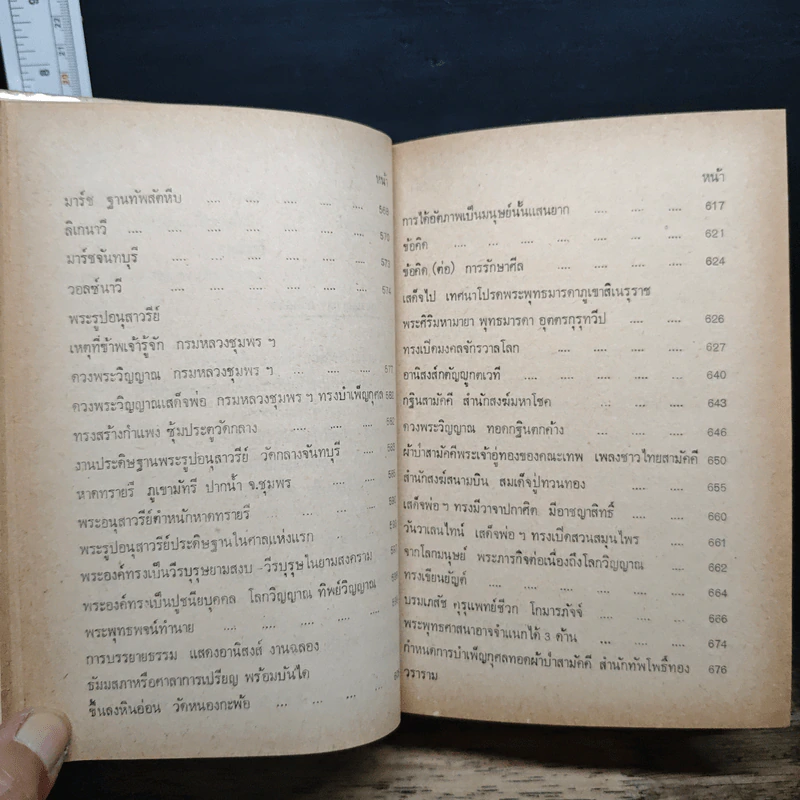 หน้า
มาร์ช ฐานทัพสัตหีบ .... .... .... 568
ลิเกนาวี .... .... .... .... .... 570
มาร์ชจันทบุรี .... .... .... .... 573
วอลซ์นาวี .... .... .... .... .... 574
พระรูปอนุสาวรีย์
เหตุที่ข้าพเจ้ารู้จัก กรมหลวงชุมพร ฯ
ดวงพระวิญญาณ กรมหลวงชุมพร ฯ .... .... 577
ดวงพระวิญญาณเสด็จพ่อ กรมหลวงชุมพร ฯ ทรงบำเพ็ญกุศล 580
ทรงสร้างกำแพง ซุ้มประตูวัดกลาง .... .... .... 582
งานประดิษฐานพระรูปอนุสาวรีย์ วัดกลางจันทบุรี ....
หาดทรายรี ภูเขามัทรี ปากน้ำ จ.ชุมพร .... ....
พระอนุสาวรีย์ตำหนักหาดทรายรี .... .... ....
พระรูปอนุสาวรีย์ประดิษฐานในศาลแห่งแรก .... ....
พระองค์ทรงเป็นวีรบุรุษยามสงบ -วีรบุรุษในยามสงคราม
พระองค์ทรงเป็นปูชนียบุคคล โลกวิญญาณ ทิพย์วิญญาณ
พระพุทธพจน์ทำนาย .... .... .... ....
การบรรยายธรรม แสดงอานิสงส์ งานฉลอง
ธัมมสภาหรือศาลาการเปรียญ พร้อมบันได
ชั้นลงหินอ่อน วัดหนองกะพ้อ .... .... .... ....
หน้า
การได้อัตภาพเป็นมนุษย์นั้นแสนยาก .... .... .... 617
ข้อคิด .... .... .... .... .... .... 621
ข้อคิด (ต่อ) การรักษาศีล .... .... .... .... 624
เสด็จไป เทศนาโปรดพระพุทธมารดาภูเขาสิเนรุราช
พระศิริมหามายา พุทธมารดา อุดดรกุรุทวีป .... .... 626
ทรงเปิดมงคลจักรวาลโลก .... .... .... .... 627
อานิสงส์กตัญญูกตเวที .... .... .... .... 640
กฐินสามัคคี สำนักสงฆ์มหาโชค .... .... .... 643
ดวงพระวิญญาณ ทอดกฐินตกค้าง .... .... .... 646
ผ้าป่าสามัคคีพระเจ้าอู่ทองของคณะเทพ เพลงชาวไทยสามัคคี 650
สำนักสงฆ์สนามบิน สมเด็จปู่ทวนทอง .... .... 655
เสด็จพ่อ ฯ ทรงมีวาจาปกาศิต มีอาชญาสิทธิ์ .... .... 660
วันวาเลนไทน์ เสด็จพ่อ ฯ ทรงเปิดสวนสมุนไพร .... 661
จากโลกมนุษย์ พระภารกิจต่อเนื่องถึงโลกวิญญาณ .... 662
ทรงเขียนยัญต์ .... .... .... .... .... 664
บรมเภสัช คุรุแพทย์ชีวก โกมารภัจจ์ .... .... 666
พระพุทธศาสนาอาจจำแนกได้ 3 ด้าน .... .... .... 674
กำหนดการบำเพ็ญกุศลทอดผ้าป่าสามัคคี สำนักทัพโพธิ์ทอง 676
วราราม